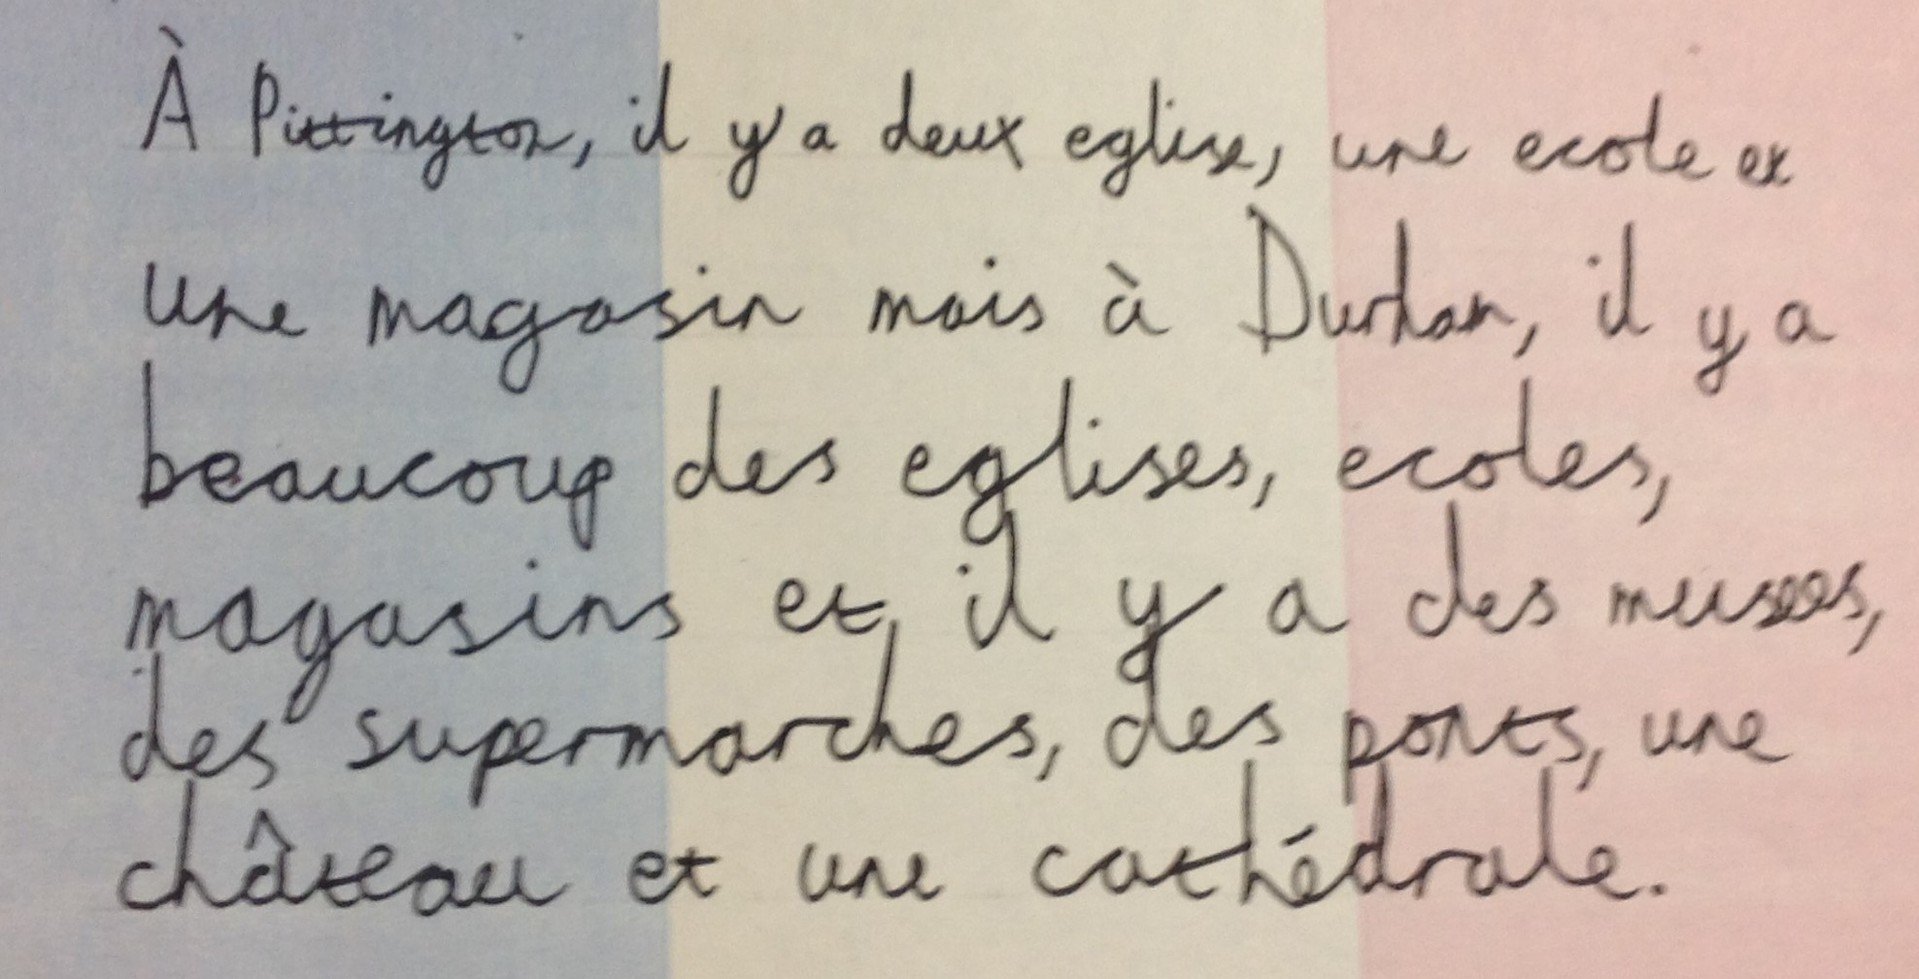 À Pittington, il y a deux eglise, une ecole et
une magasin mais à Durham, il y a
beaucoup des eglises, ecoles,
magasins et, il y a des musees,
des supermarches, des ponts, une
château et une cathédrale.